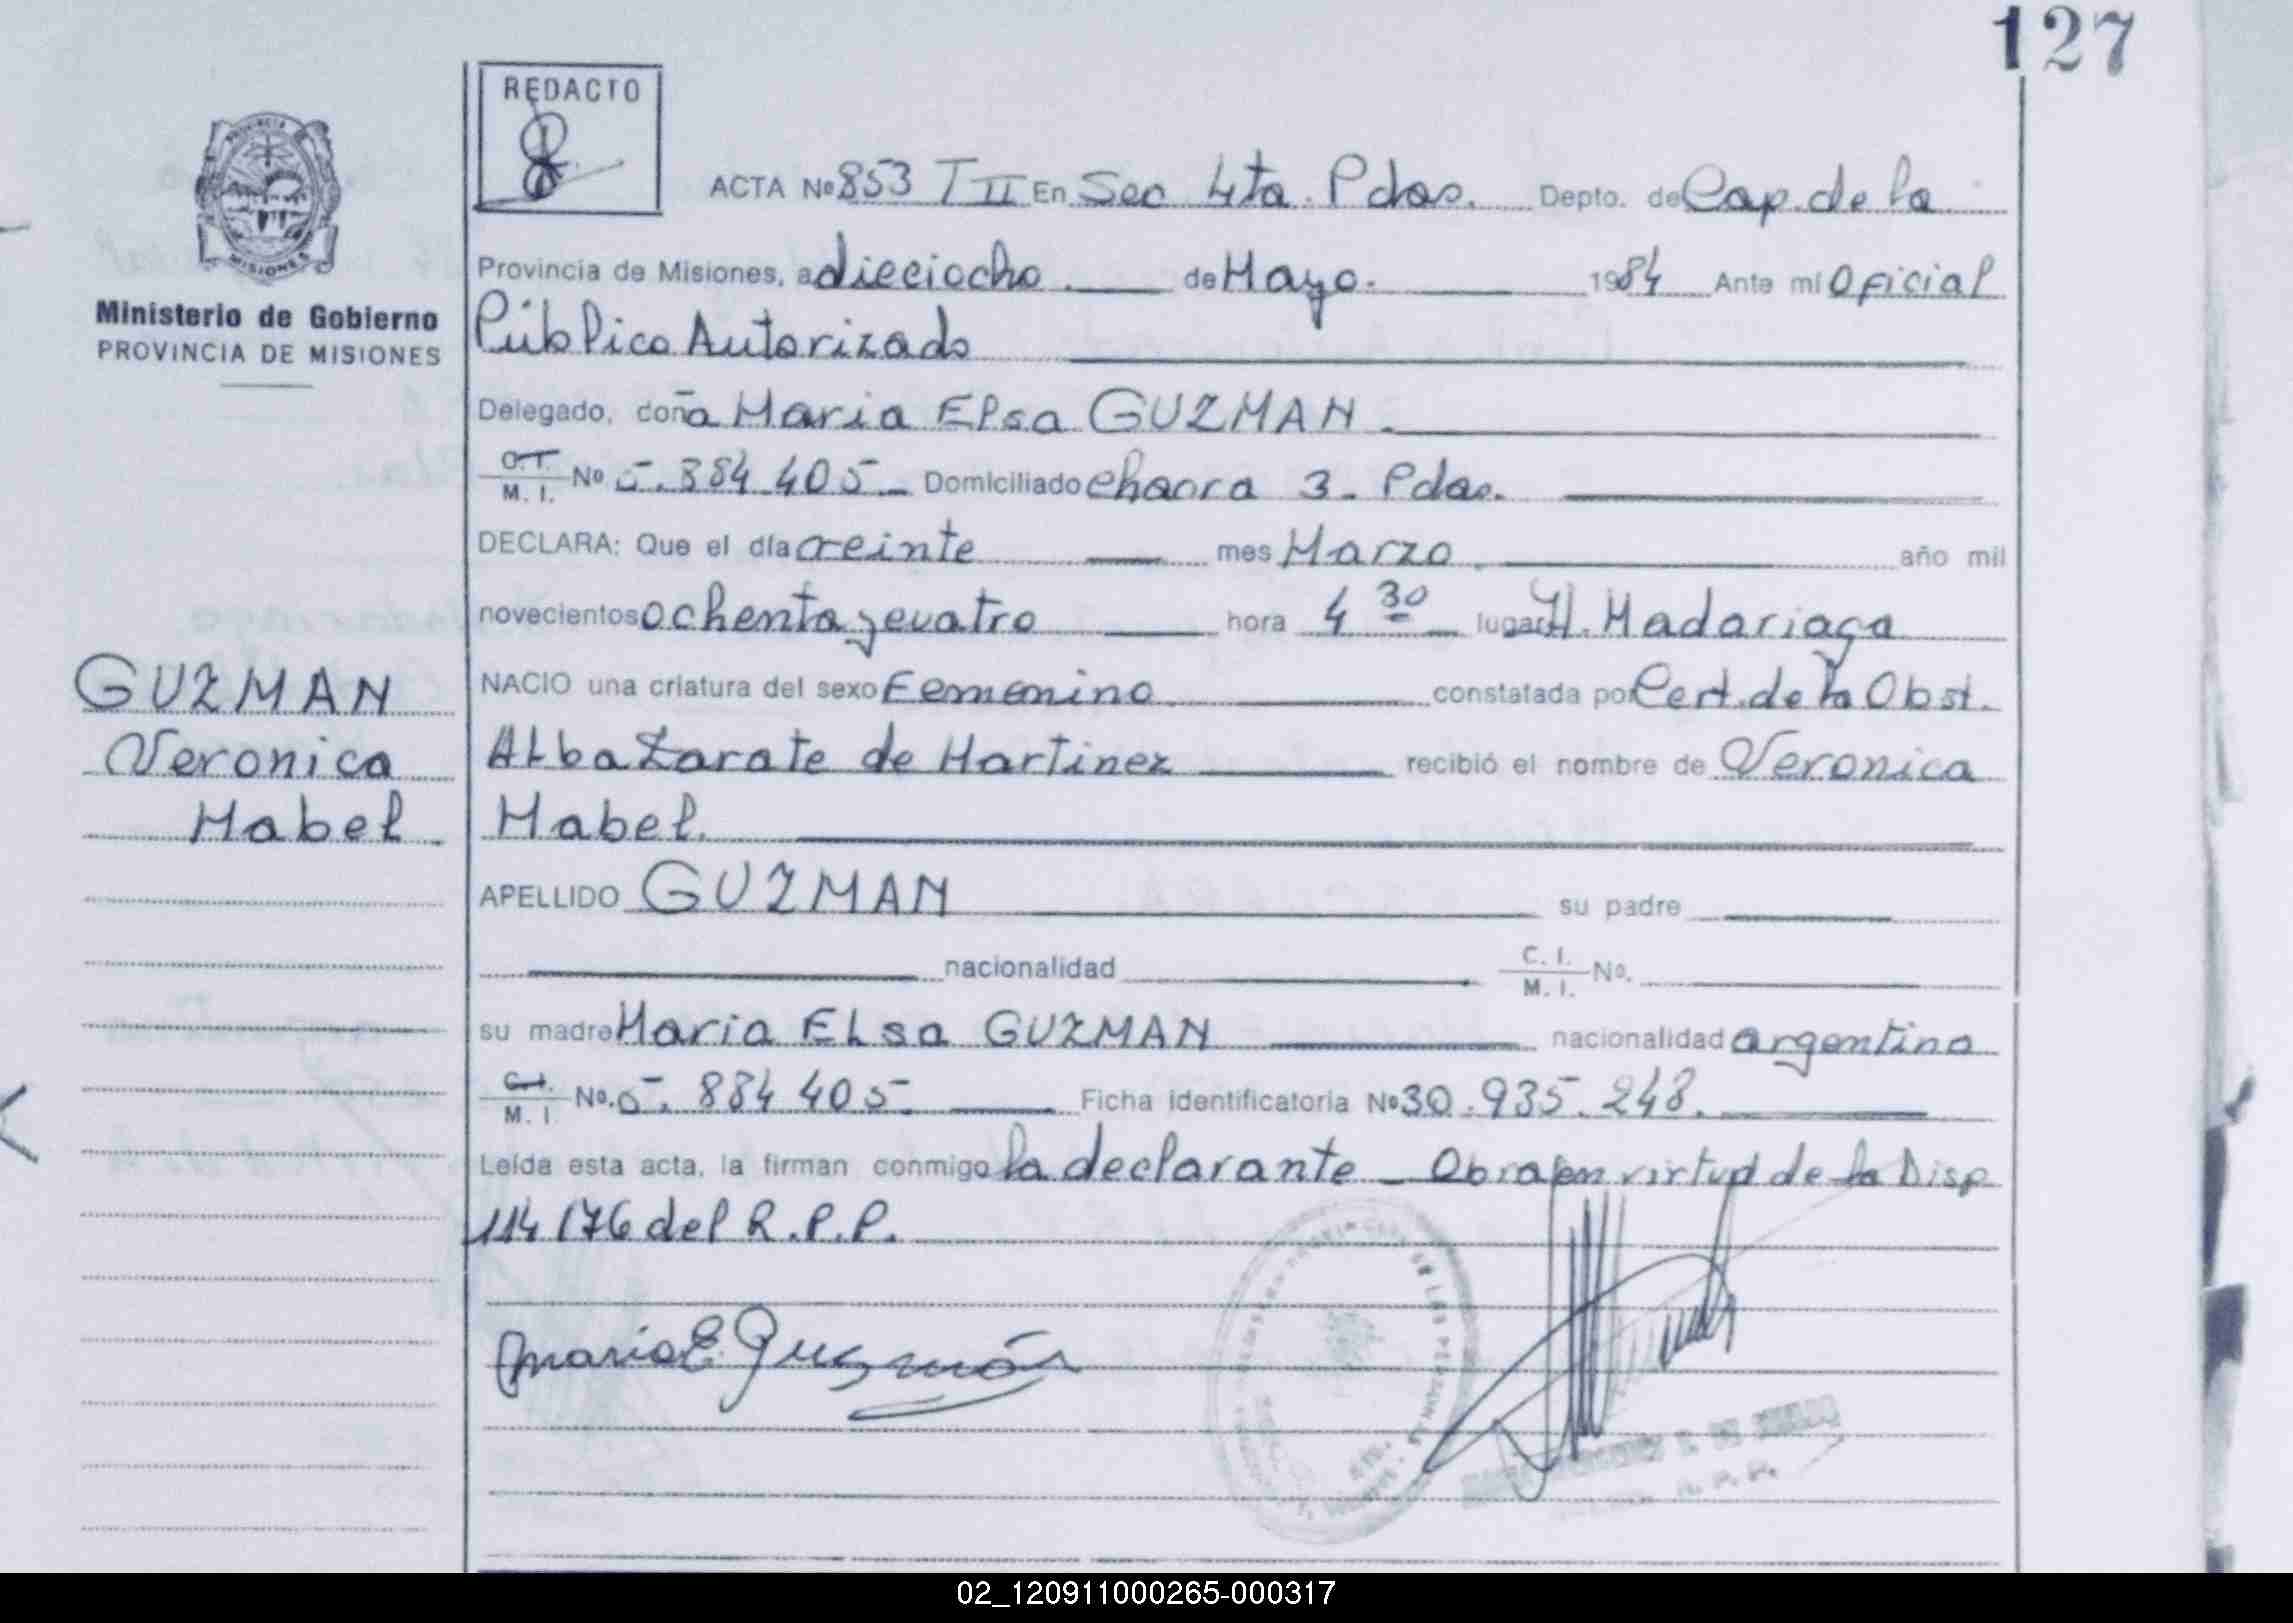 127
REDACTO
ACTA Nº 853 T II En Sec 4ta. Pdas. Depto. de Cap. de la
Provincia de Misiones, a dieciocho de Mayo. 1984 Ante mí Oficial
PROVINCIA DE MISIONES
Ministerio de Gobierno
PROVINCIA DE MISIONES
Público Autorizado
Delegado, doña Maria Elsa GUZMAN.
C.I. M. I. Nº 5.884 405 Domiciliado Chacra 3. Pdas.
DECLARA: Que el día veinte mes Marzo año mil
novecientos ochenta y cuatro hora 4 30 lugar H. Madariaga
GUZMAN
Veronica
Mabel
NACIO una criatura del sexo Femenino constatada por Cert. de la Obst.
Alba Zarate de Martinez recibió el nombre de Veronica
Mabel.
APELLIDO GUZMAN su padre
nacionalidad C. I. M. I. Nº.
su madre Maria Elsa GUZMAN nacionalidad argentina
C.I. M. I. Nº. 5. 884 405 Ficha identificatoria Nº 30.935.248.
Leída esta acta, la firman conmigo la declarante Obra en virtud de la Disp
114/76 del R.P.P.
Maria E. Guzmán
R. P. P.
02_120911000265-000317